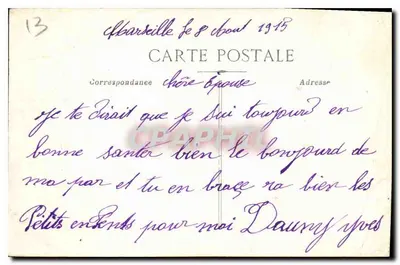 13
Marseille le 8 Aout 1915
CARTE POSTALE
Correspondance
Adresse
Chère Epouse
Je te dirait que je sui toujourd en
bonne santer bien le bonjourd de
ma par et tu en brace ra bien les
Petits enfents pour moi Dauny yves